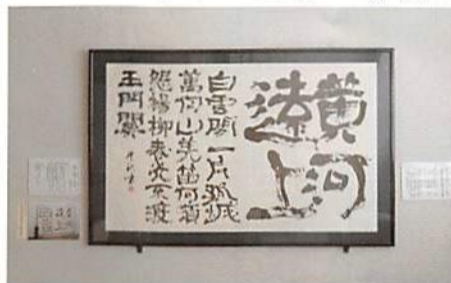 黄河
遠上
白雲間一片孤城
萬仞山羌笛何須
怨楊柳春光不渡
玉門關